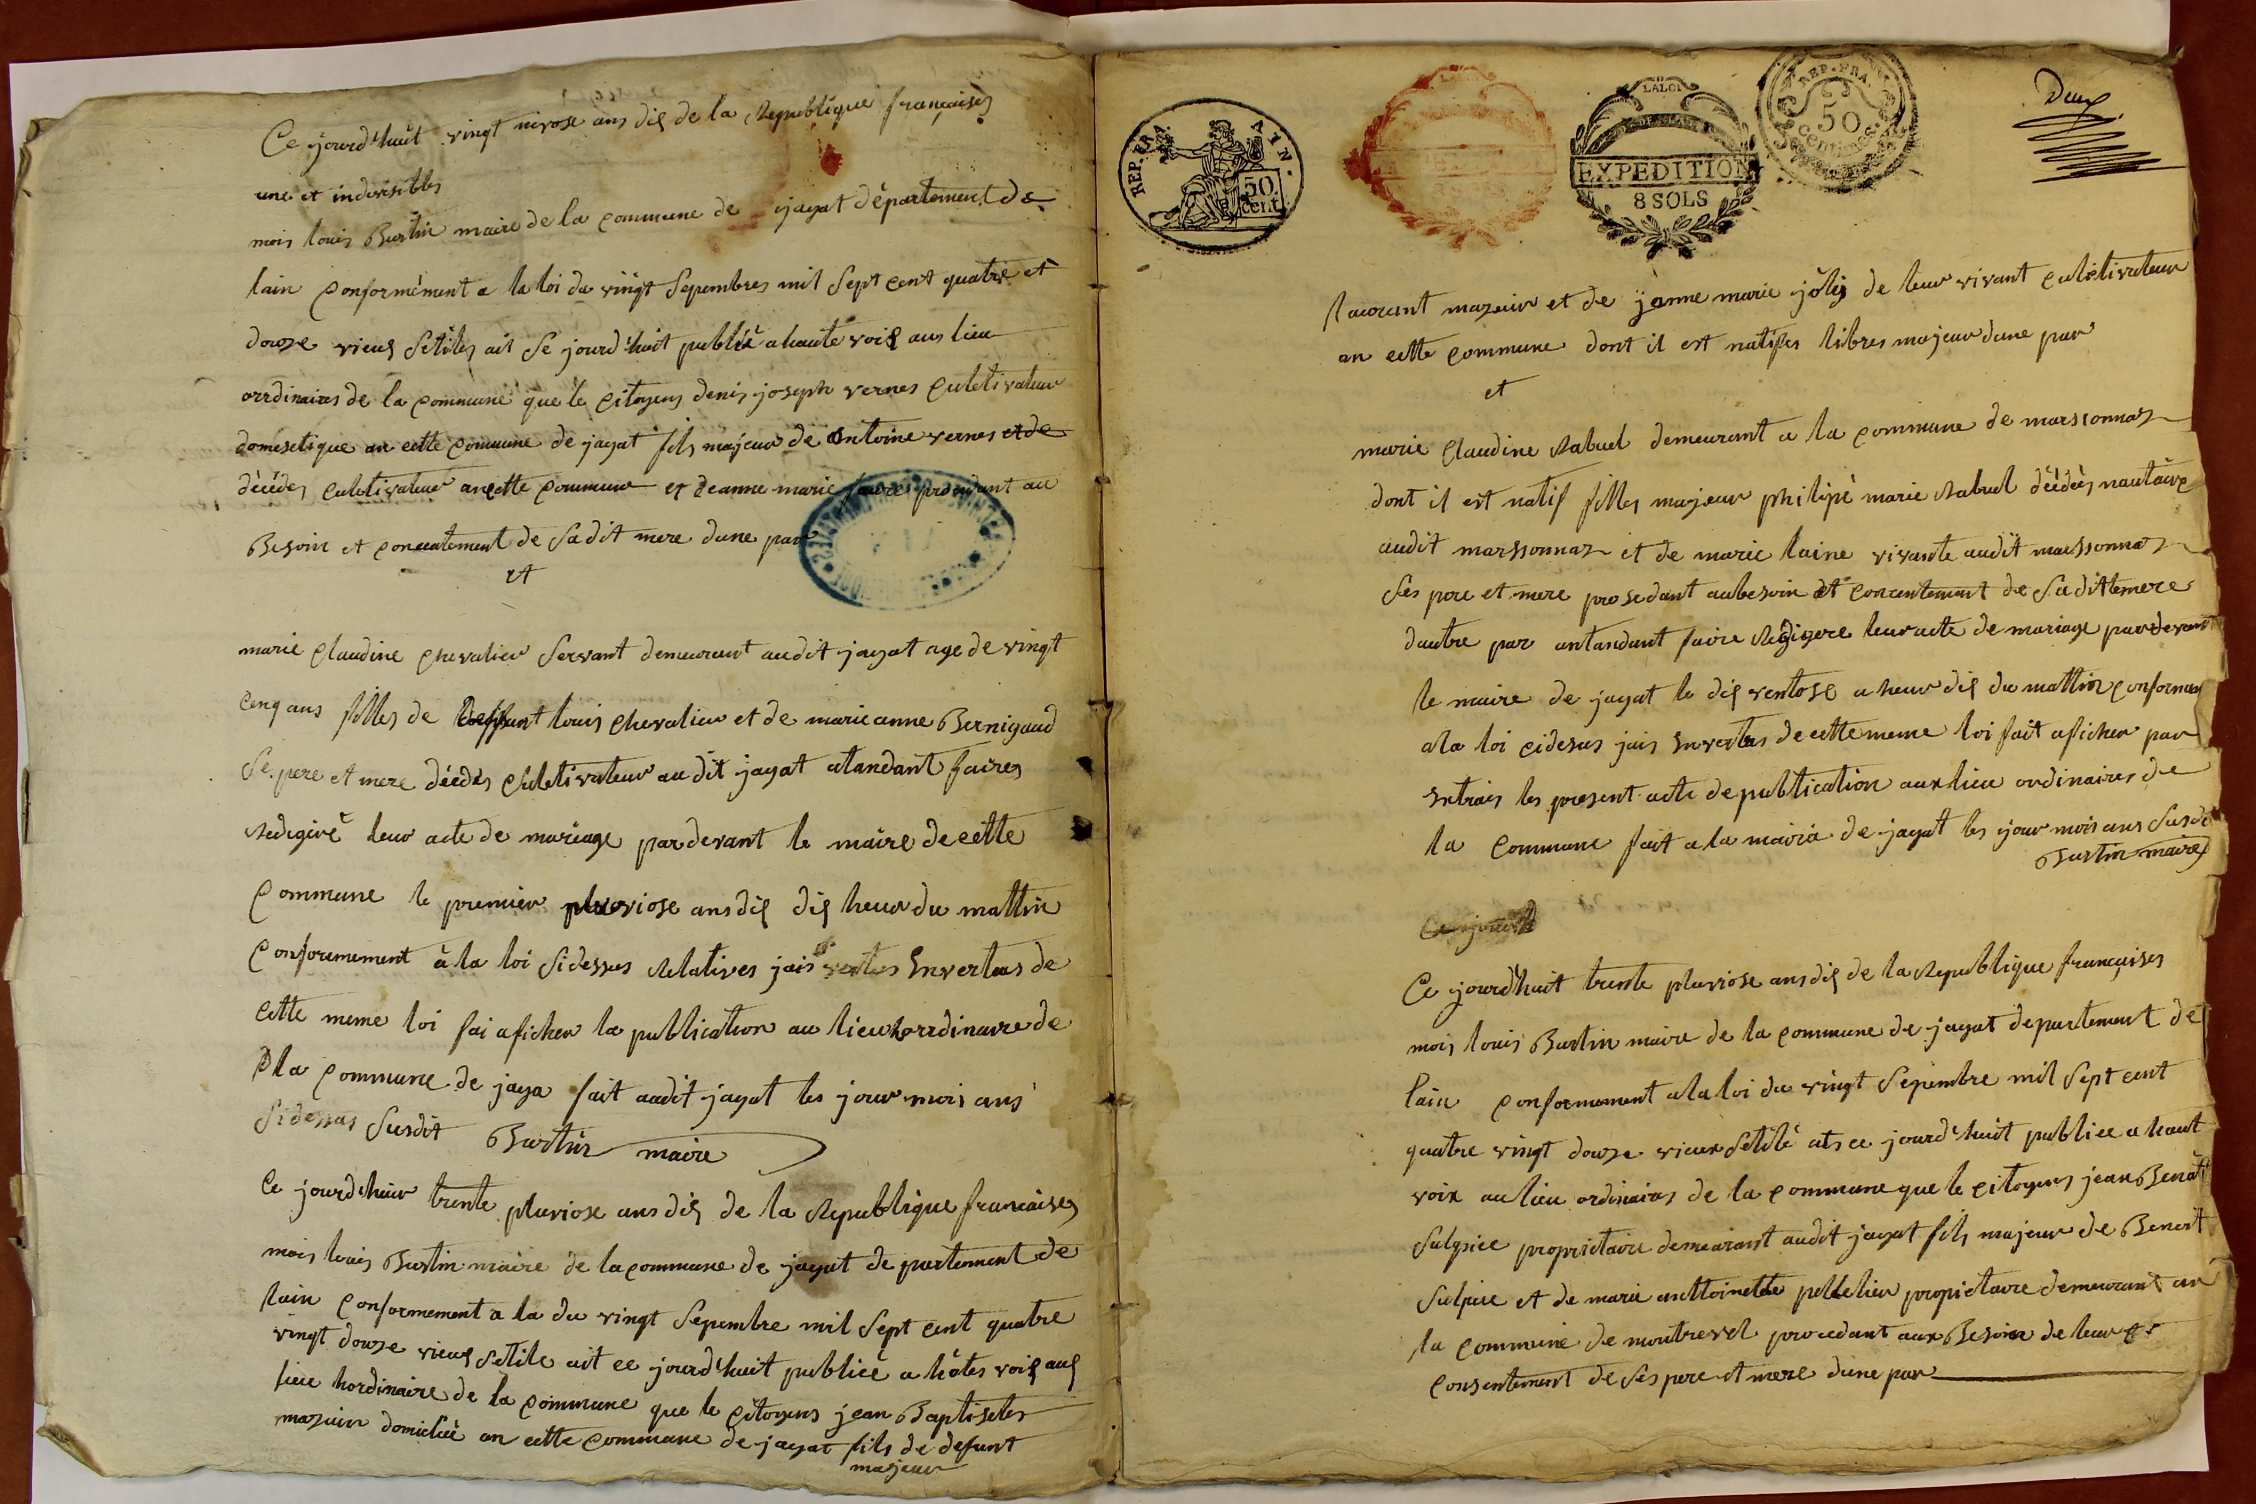 Ce jourd'huit vingt nivose ans dix de la Republique françaises
une et indivisibles
mois louis Burtin maire de la commune de jayat département de
lain conformément a la loi du vingt Sepembres mil Sept cent quatre et
douze vieux Setiles ait Se jourd'huit publiè a haute voix aus lieu
orrdinaires de la commune que le citoyens denis joseph vernes culetivateur
domesetique an cette comune de jayat fils majeur de antoine vernes et de
décédes culetivateur an cette commune et de anne marie favre procedant au
Besoin et concentement de Sadit mere dune par
et
marie claudine chevalier Servant demeurant audit jayat age de vingt
cenq ans filles de deffunt louis chevalier et de marie anne Bernigaud
Se pere et mere décédes culetivateur au dit jayat atandant faires
Redigiré leur acte de mariage par devant le maire de cette
commune le premier pluviose ans dix dix heur du mattin
conformement à la loi Sidessus Relatives jais vertus Envertus de
cette meme loi fai aficher la publication au lieu horrdinaire de
la commune de jaya fait audit jayat les jour mois ans
Sidessus Susdit Burtin maire
Ce jourd'huit trente pluviose ans dix de la Republique francaises
mois louis Burtin maire de la commune de jayat de partement de
lain conformement a la du vingt Sepembre mil Sept cent quatre
vingt douze vieux Setile ait ce jourd'huit publiée a hôtes voix aux
lieu hordinaire de la commune que le citoyens jean Baptisetes
mazuir domiciliè an cette commune de jayat fils de defunt
majeur
REP. FRA. AIN.
50 cent.
LA LOI
EXPEDITION
8 SOLS
REP. FRA.
50
centimes
Deux
Laurant mazuir et de janne marie joly de leur vivant culetivateur
an cette commune dont il est natifes libres majeur dune par
et
marie claudine Rabuel demeurant a la commune de marssonnaz
dont il est natif filles majeur philipè marie Rabuel décédes nautaire
audit marssonnaz et de marie laine vivante audit marssonnaz
Ses pere et mere prosedant au besoin et concentement de Sadittemere
dautre par antandant faire Redigere leur acte de mariage par devant
le maire de jayat le dix ventose a heur dix du mattin conformem
ala loi cidesus jais Envertus de cette meme loi fait aficher par
Extrais les present acte de publication aux lieu ordinaires de
la commune fait a la mairie de jayat les jour mois ans Susdi
Burtin maire
Ce jourd
Ce jourd'huit trente pluviose ans dix de la Republique françaises
mois louis Burtin maire de la commune de jayat departement de
lain conformement ala loi du vingt Sepembre mil Sept cent
quatre vingt douze vieux Setilè ats ce jourd'huit publiee a haut
voix au lieu ordinaires de la commune que le citoyens jean Benoit
Sulpice proprietaire demeurant audit jayat fils majeur de Benoit
Sulpice et de marie anttoinette pelletier propietaire demeurant an
la commune de montrevel procedant aux Besoin de leur
consentement de Ses pere et mere dune par